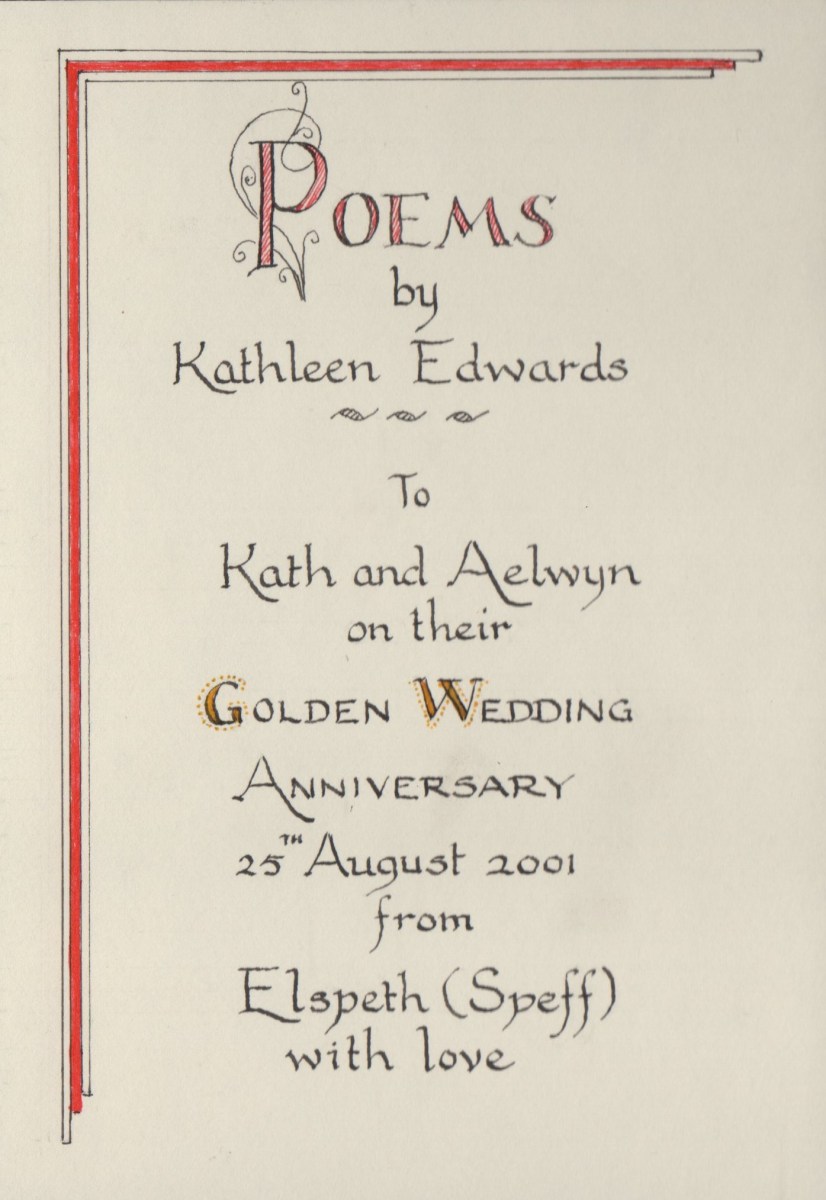 POEMS
by
Kathleen Edwards
To
Kath and Aelwyn
on their
GOLDEN WEDDING
ANNIVERSARY
25TH August 2001
from
Elspeth (Speff)
with love